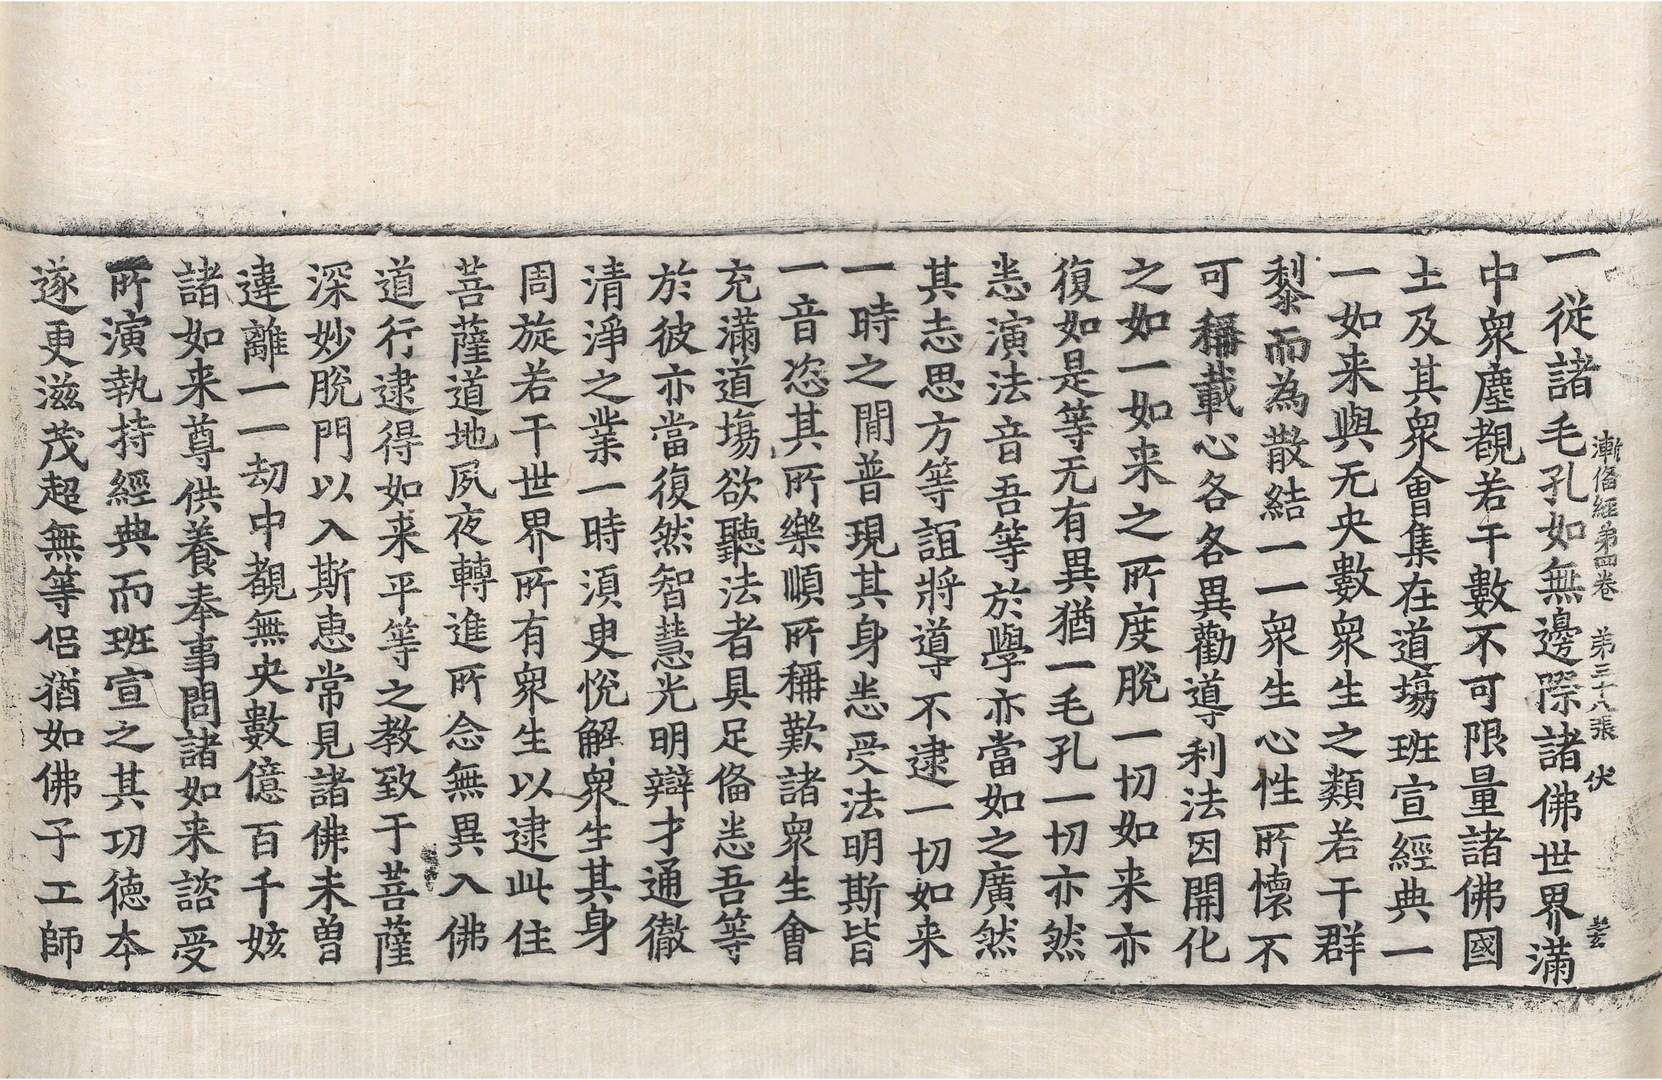 漸俻經第四卷　第三十八張　伏
一從諸毛孔如無邊際諸佛世界滿
中衆塵覩若干數不可限量諸佛國
土及其衆會集在道場班宣經典一
一如来與无央數衆生之類若干群
黎而為散結一一衆生心性所懷不
可稱載心各各異勸導利法因開化
之如一如来之所度脫一切如来亦
復如是等无有異猶一毛孔一切亦然
恙演法音吾等於學亦當如之廣然
其志思方等誼將導不逮一切如来
一時之閒普現其身恙受法明斯皆
一音恣其所樂順所稱歎諸衆生會
充滿道場欲聽法者具足俻恙吾等
於彼亦當復然智慧光明辯才通徹
清淨之業一時須臾悅解衆生其身
周旋若干世界所有衆生以逮此住
菩薩道地夙夜轉進所念無異入佛
道行逮得如来平等之教致于菩薩
深妙脫門以入斯惠常見諸佛未曽
違離一一劫中覩無央數億百千姟
諸如来尊供養奉事問諸如来諮受
所演執持經典而班宣之其功德本
遂更滋茂超無等侶猶如佛子工師